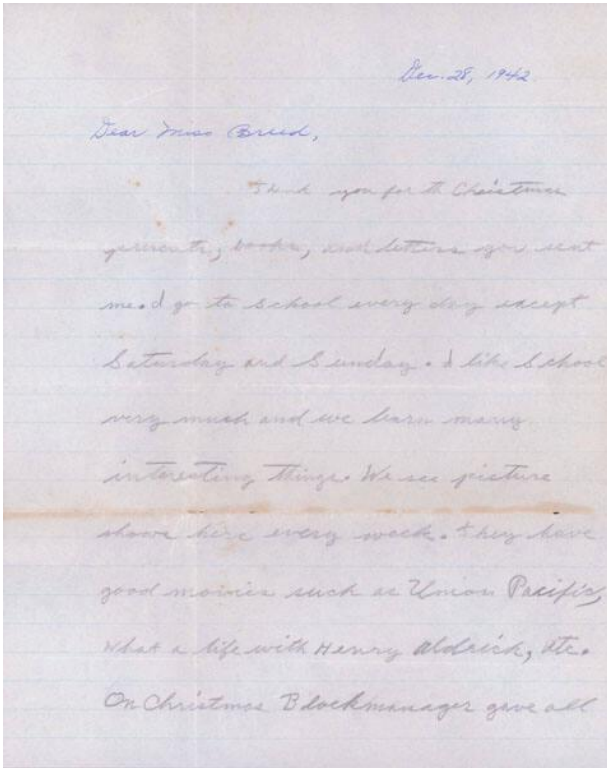 Dec. 28, 1942
Dear Miss Breed,
Thank you for the Christmas
presents, books, and letters you sent
me. I go to School every day except
Saturday and Sunday. I like School
very much and we learn many
interesting things. We see picture
shows here every week. They have
good movies such as Union Pacific,
What a life with Henry Aldrich, etc.
On Christmas Blockmanager gave all